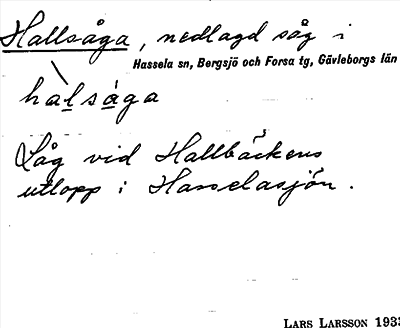 Hallsåga, nedlagd såg i
Hassela sn, Bergsjö och Forsa tg, Gävleborgs län
hàlsåga
Låg vid Hallbäckens
utlopp i Hasselasjön.
LARS LARSSON 1933